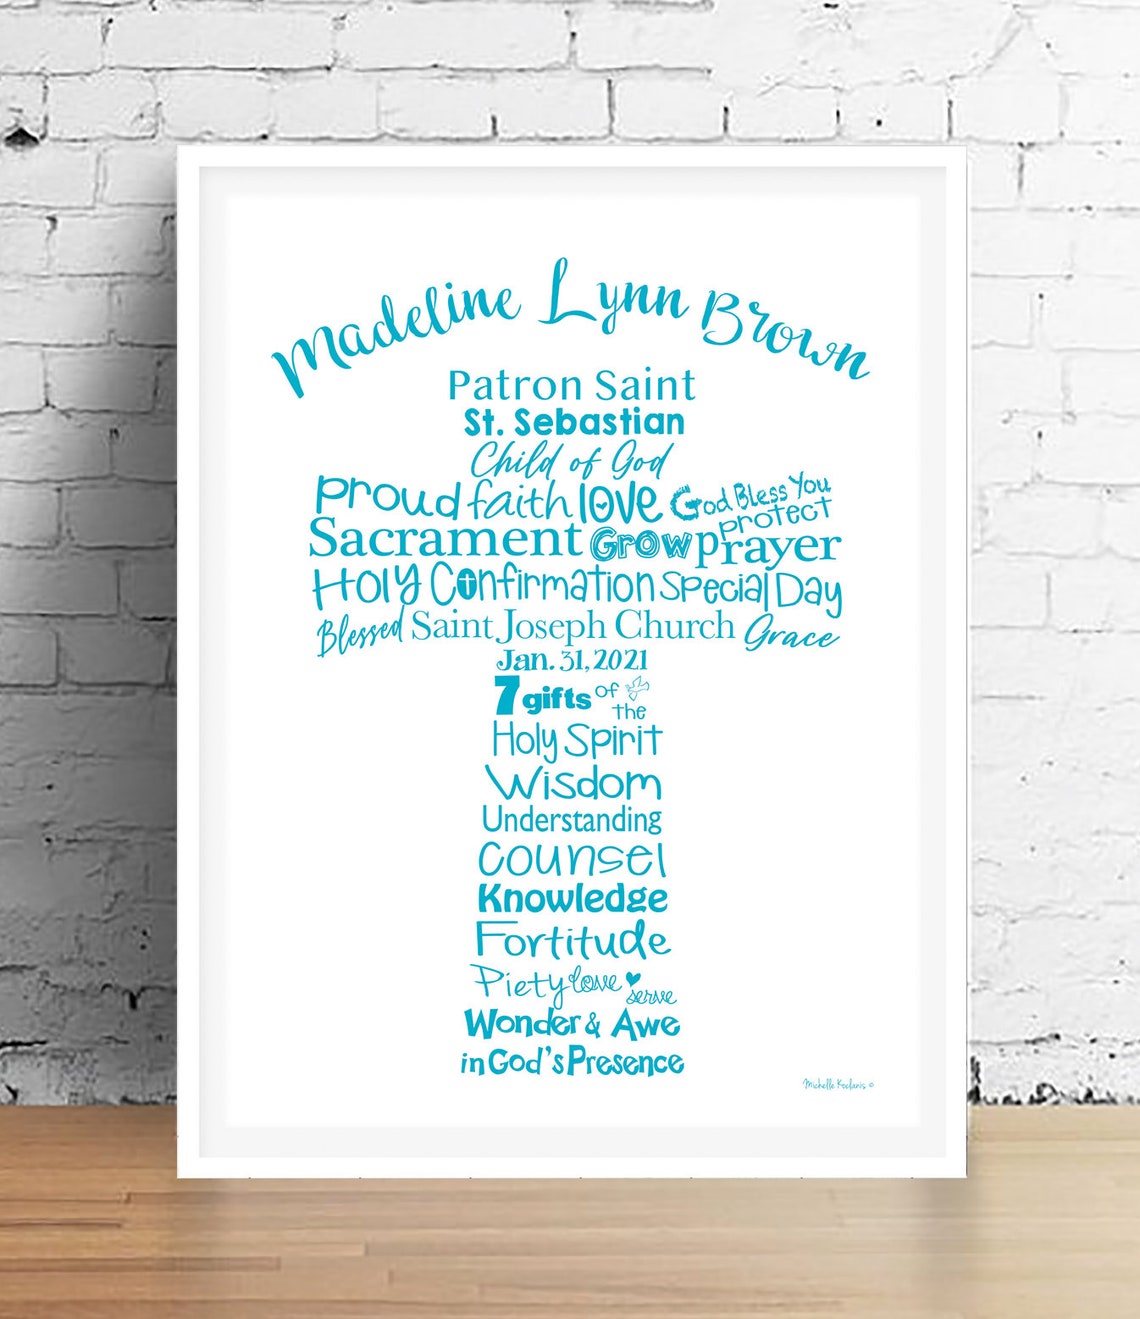 Madeline Lynn Brown
Patron Saint
St. Sebastian
Child of God
Proud faith love God Bless You
protect
Sacrament Grow prayer
Holy Confirmation Special Day
Blessed Saint Joseph Church Grace
Jan. 31, 2021
7 gifts of the
Holy Spirit
Wisdom
Understanding
Counsel
Knowledge
Fortitude
Piety love serve
Wonder & Awe
in God's Presence
Michelle Keolanis ©